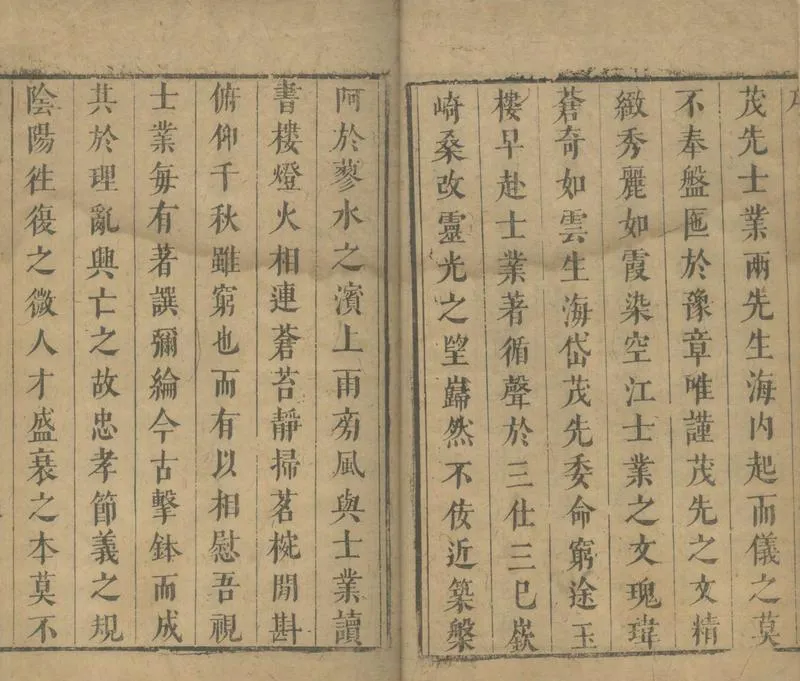 茂先士業兩先生海内起而儀之莫
不奉盤匜於豫章唯謹茂先之文精
緻秀麗如霞染空江士業之文瑰瑋
蒼奇如雲生海岱茂先委命窮途玉
樓早赴士業著循聲於三仕三已嶔
崎桑改靈光之望巋然不佞近築槃
阿於蓼水之濱上雨旁風與士業讀
書樓燈火相連蒼苔靜掃茗椀閒斟
俯仰千秋雖窮也而有以相慰吾視
士業每有著譔彌綸今古擊鉢而成
其於理亂興亡之故忠孝節義之規
陰陽徃復之微人才盛衰之本莫不